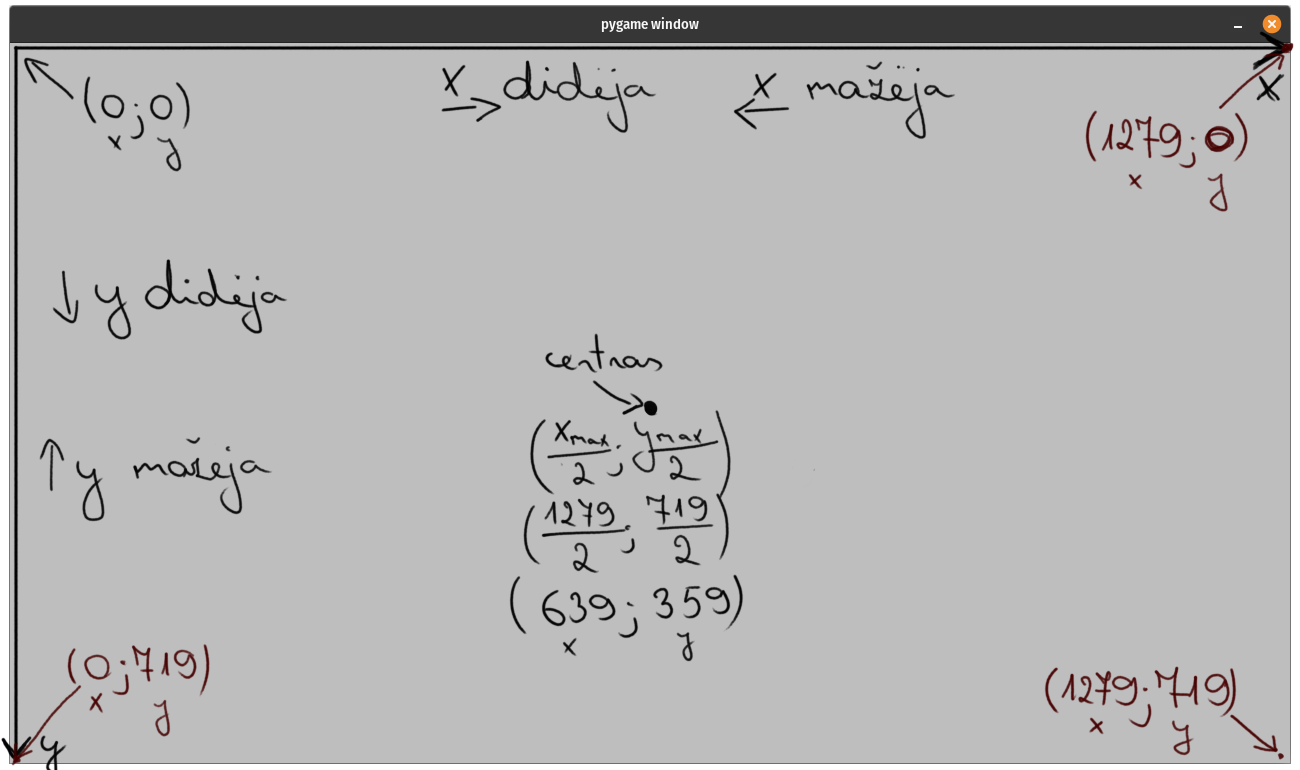 pygame window
(0;0)
x y
x didėja
x mažėja
x
(1279;0)
x y
y didėja
centras
(xmax/2; ymax/2)
y mažėja
(1279/2; 719/2)
(639; 359)
x y
(0;719)
x y
(1279;719)
x y
y